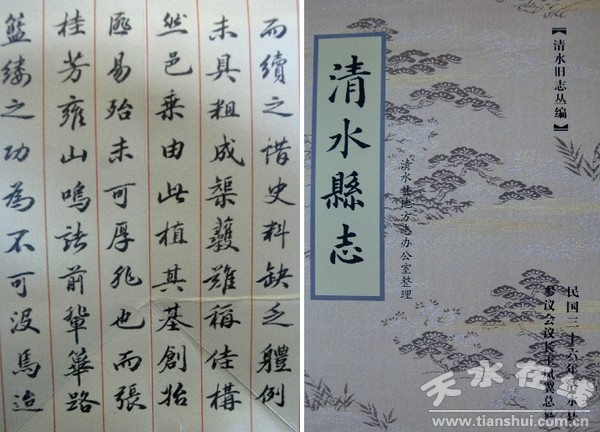 而續之惜史料缺乏體例
未具粗成榘矱難稱佳構
然邑乘由此植其基創始
匪易殆未可厚非也而張
桂芳雍山鳴諸前輩篳路
籃縷之功為不可沒焉迨
【清水旧志丛编】
清水縣志
清水县地方志办公室整理
民国三十六年清水县
参议会议长王凤翼总纂
天水在线
www.tianshui.com.cn